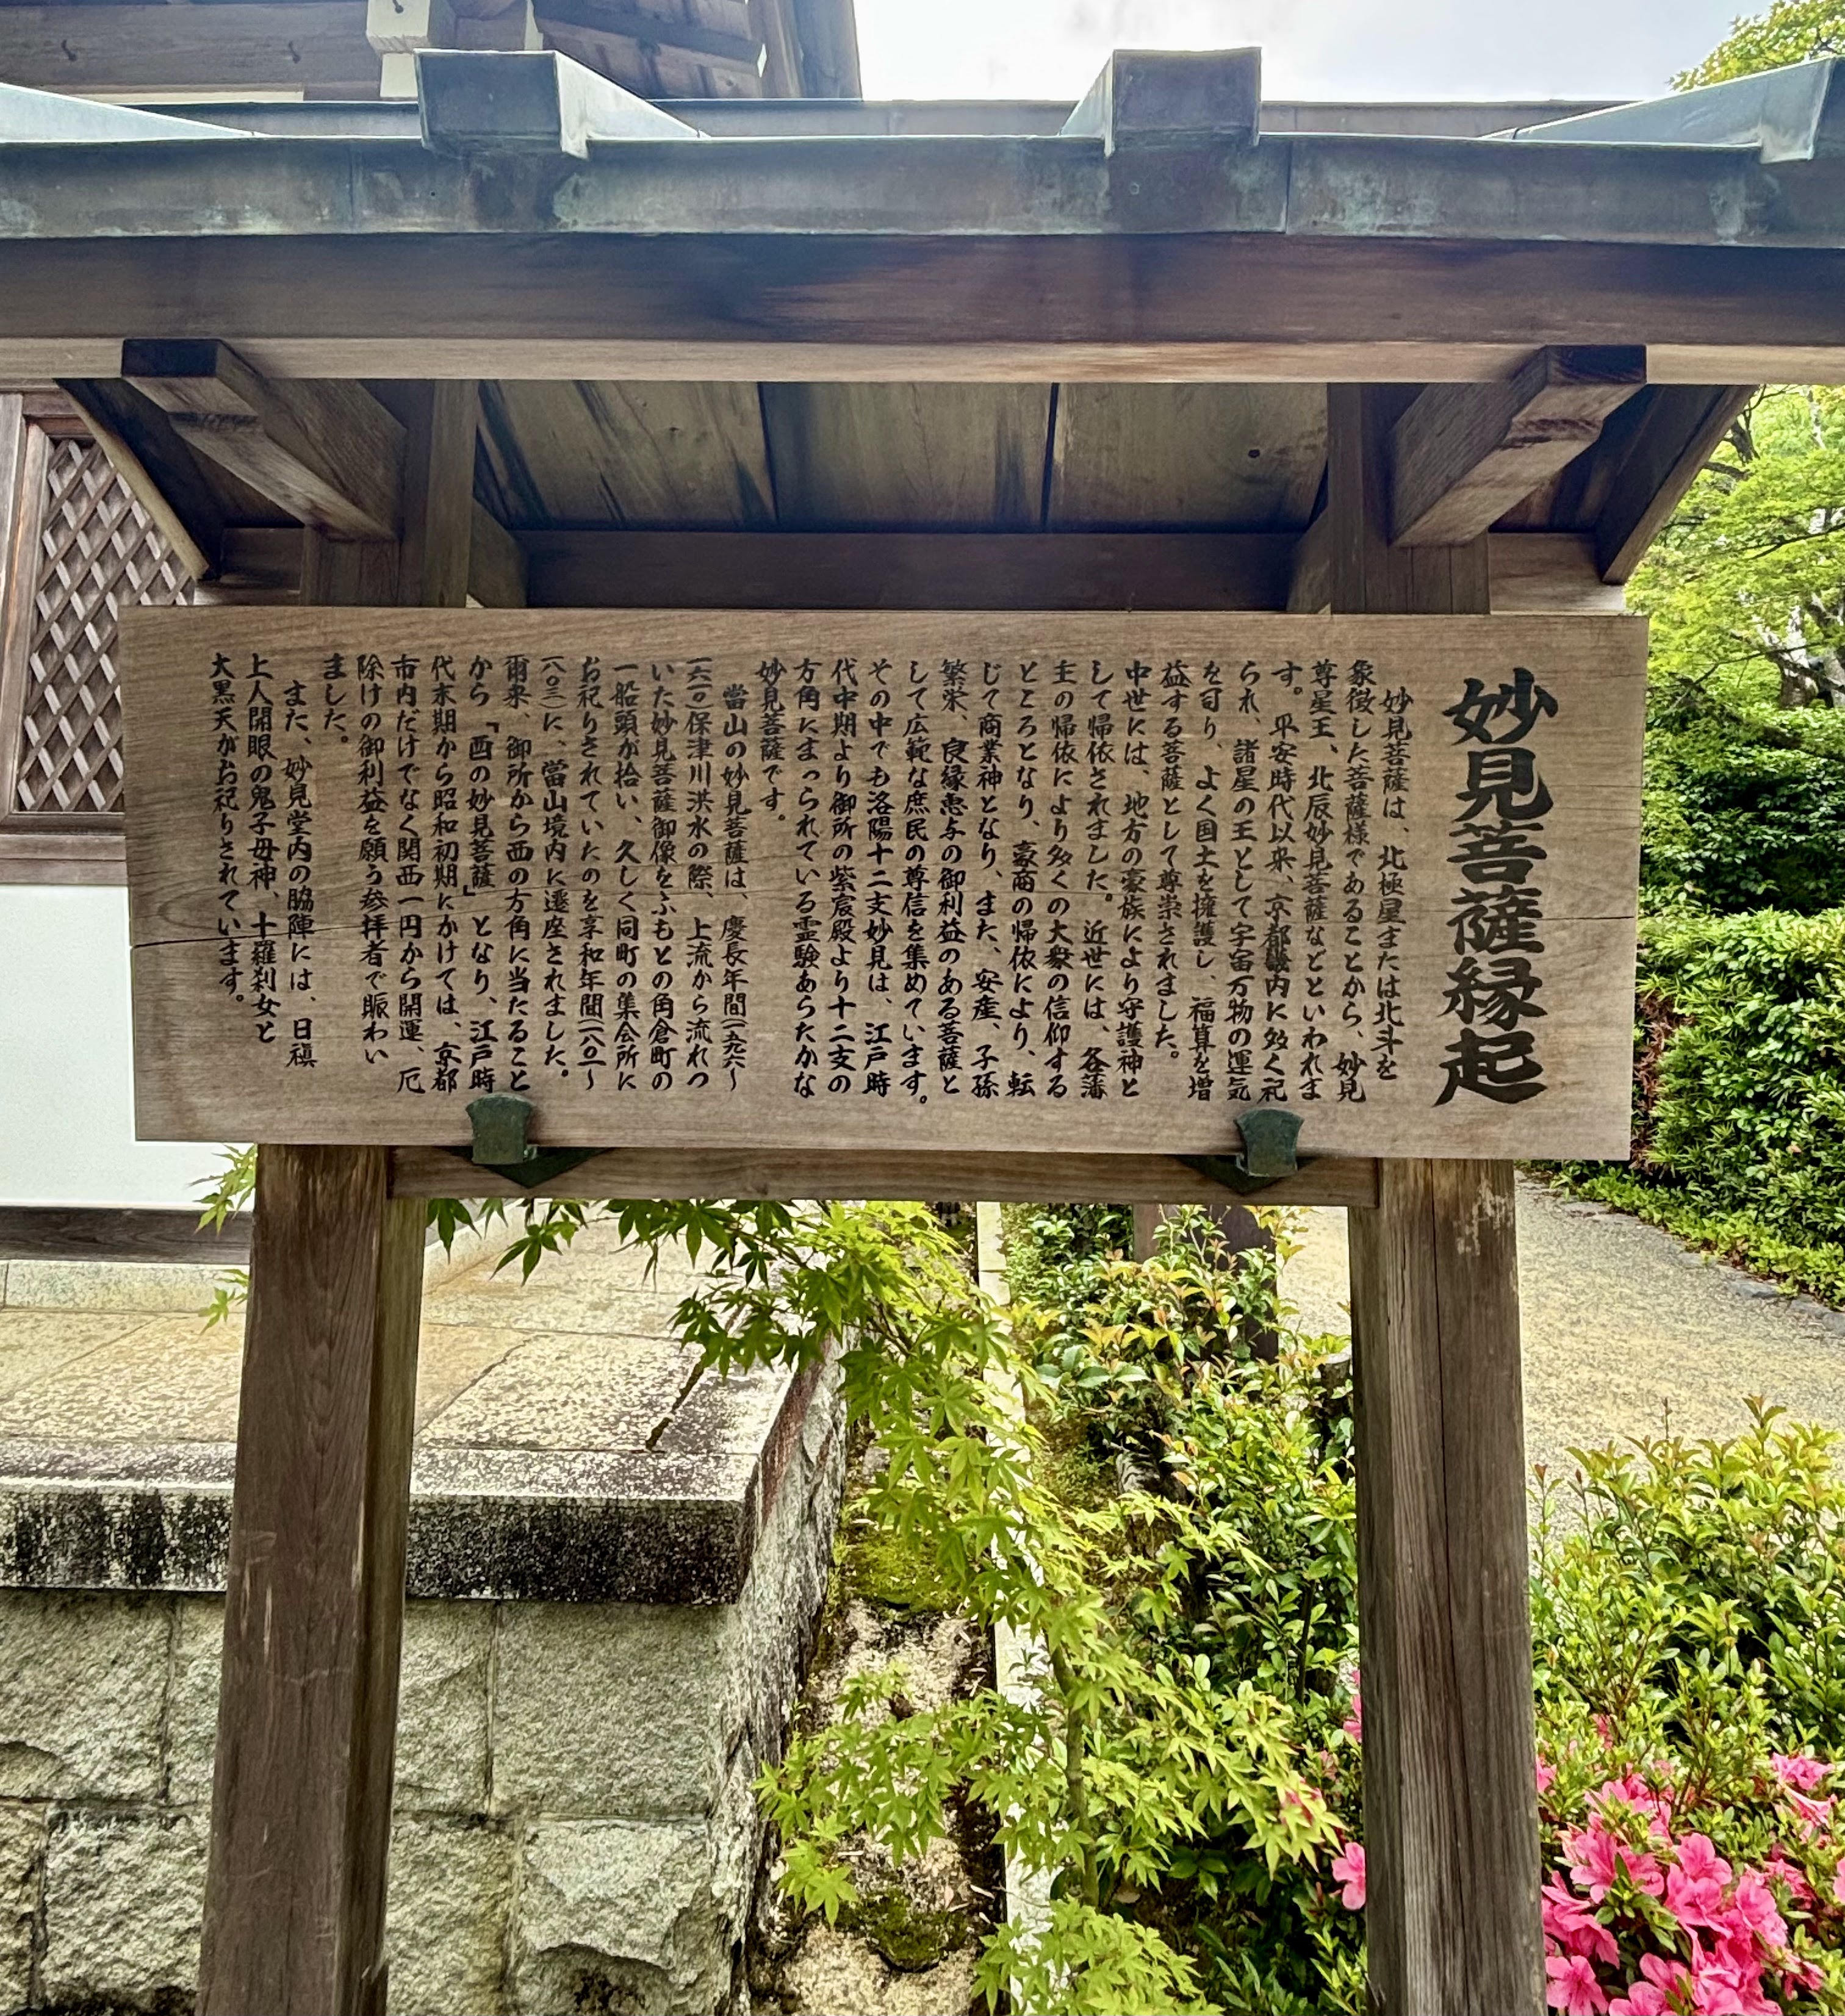 妙見菩薩縁起
妙見菩薩は、北極星または北斗を
象徴した菩薩様であることから、妙見
尊星王、北辰妙見菩薩などといわれま
す。平安時代以来、京都畿内に多く祀
られ、諸星の王として宇宙万物の運気
を司り、よく国土を擁護し、福算を増
益する菩薩として尊崇されました。
中世には、地方の豪族により守護神と
して帰依されました。近世には、各藩
主の帰依により多くの大衆の信仰する
ところとなり、豪商の帰依により、転
じて商業神となり、また、安産、子孫
繁栄、良縁恵与の御利益のある菩薩と
して広範な庶民の尊信を集めています。
その中でも洛陽十二支妙見は、江戸時
代中期より御所の紫宸殿より十二支の
方角にまつられている霊験あらたかな
妙見菩薩です。
當山の妙見菩薩は、慶長年間(一五九六〜
一六一〇)保津川洪水の際、上流から流れつ
いた妙見菩薩御像をふもとの角倉町の
一船頭が拾い、久しく同町の集会所に
お祀りされていたのを享和年間(一八〇一〜
一八〇三)に、當山境内に遷座されました。
爾来、御所から西の方角に当たること
から「酉の妙見菩薩」となり、江戸時
代末期から昭和初期にかけては、京都
市内だけでなく関西一円から開運、厄
除けの御利益を願う参拝者で賑わい
ました。
また、妙見堂内の脇陣には、日禛
上人開眼の鬼子母神、十羅刹女と
大黒天がお祀りされています。